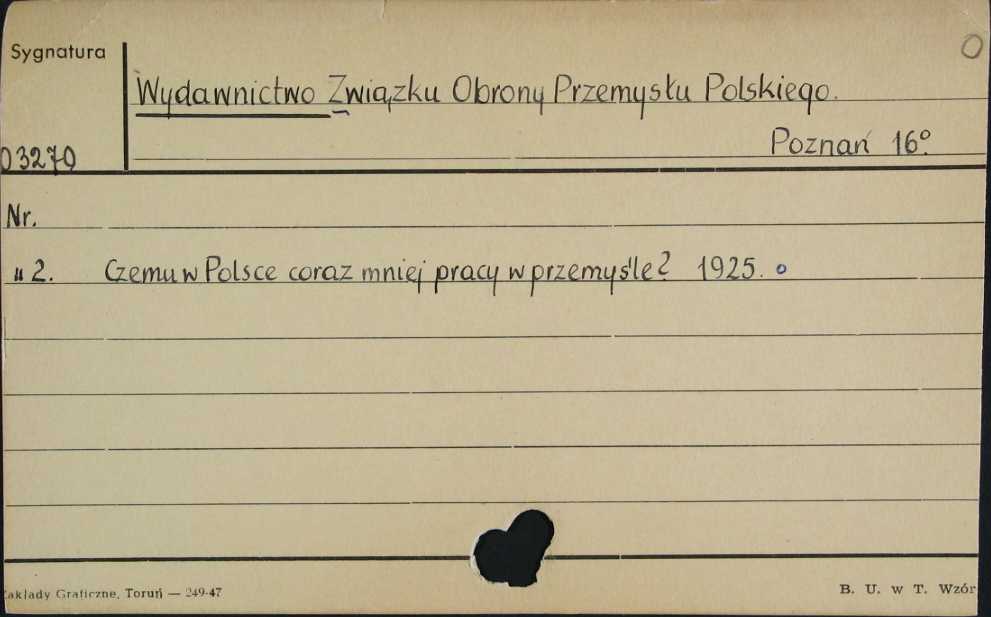 Sygnatura
O
Wydawnictwo Związku Obrony Przemysłu Polskiego.
Poznań 16°.
03270
Nr.
" 2. Czemu w Polsce coraz mniej pracy w przemyśle? 1925. o
Zakłady Graficzne, Toruń — 249-47
B. U. w T. Wzór